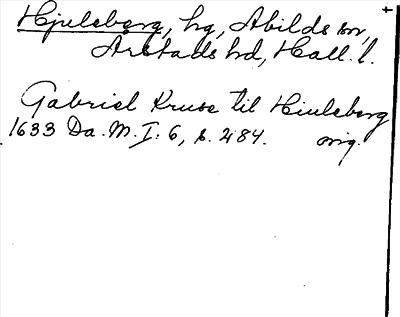 Hjuleberg, hg, Abilds sn,
Årstads hd, Hall. l.
Gabriel Kruse til Hiuleberg
1633 Da. M. I: 6, s. 284. orig.